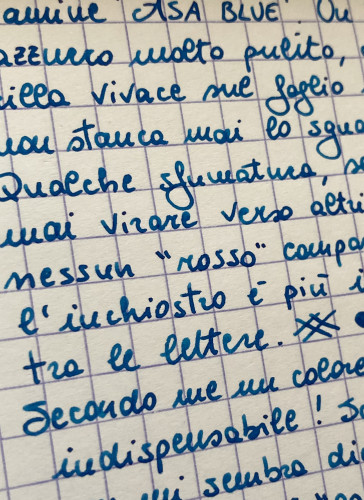 ASA BLUE". Un
azzurro molto pulito,
vivace sul foglio
non stanca mai lo
Qualche sfumatura,
mai virare verso altri
nessun "rosso"
l'inchiostro è più
tra le lettere.
Secondo me un colore
indispensabile!
mi sembra